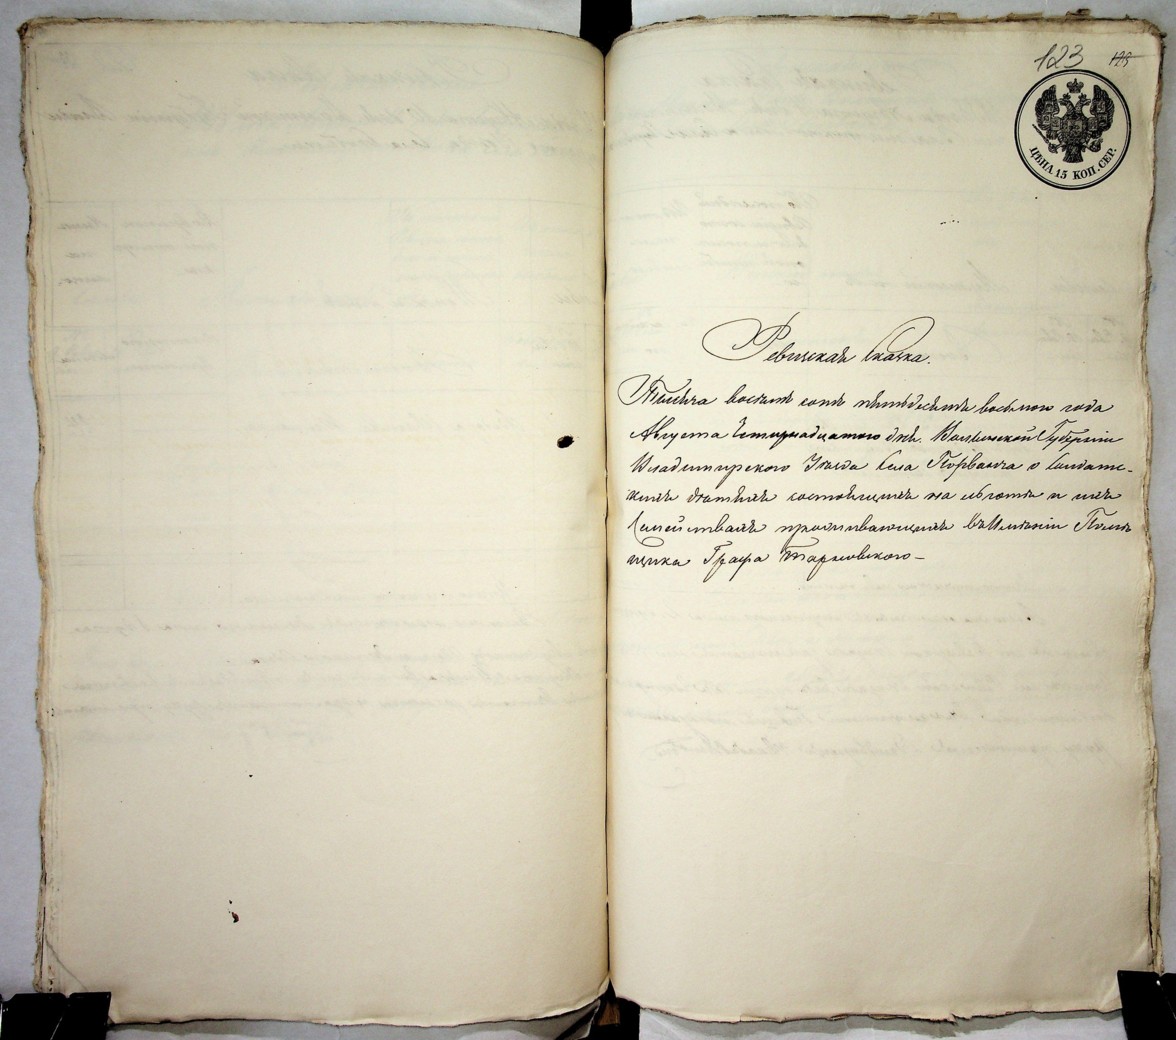 123 125
ЦѢНА 15 КОП. СЕР.
Ревизская Сказка.
Тысяча восемь сотъ пятьдесятъ восьмого года
Августа Четырнадцатого дня. Волынской Губерніи
Владимирского Уѣзда Села Порванча о Солдатс-
кихъ дѣтяхъ состоящихъ на льготѣ и ихъ
Семействахъ проживающихъ въ Имѣніи Помѣ
щика Графа Тарновского—